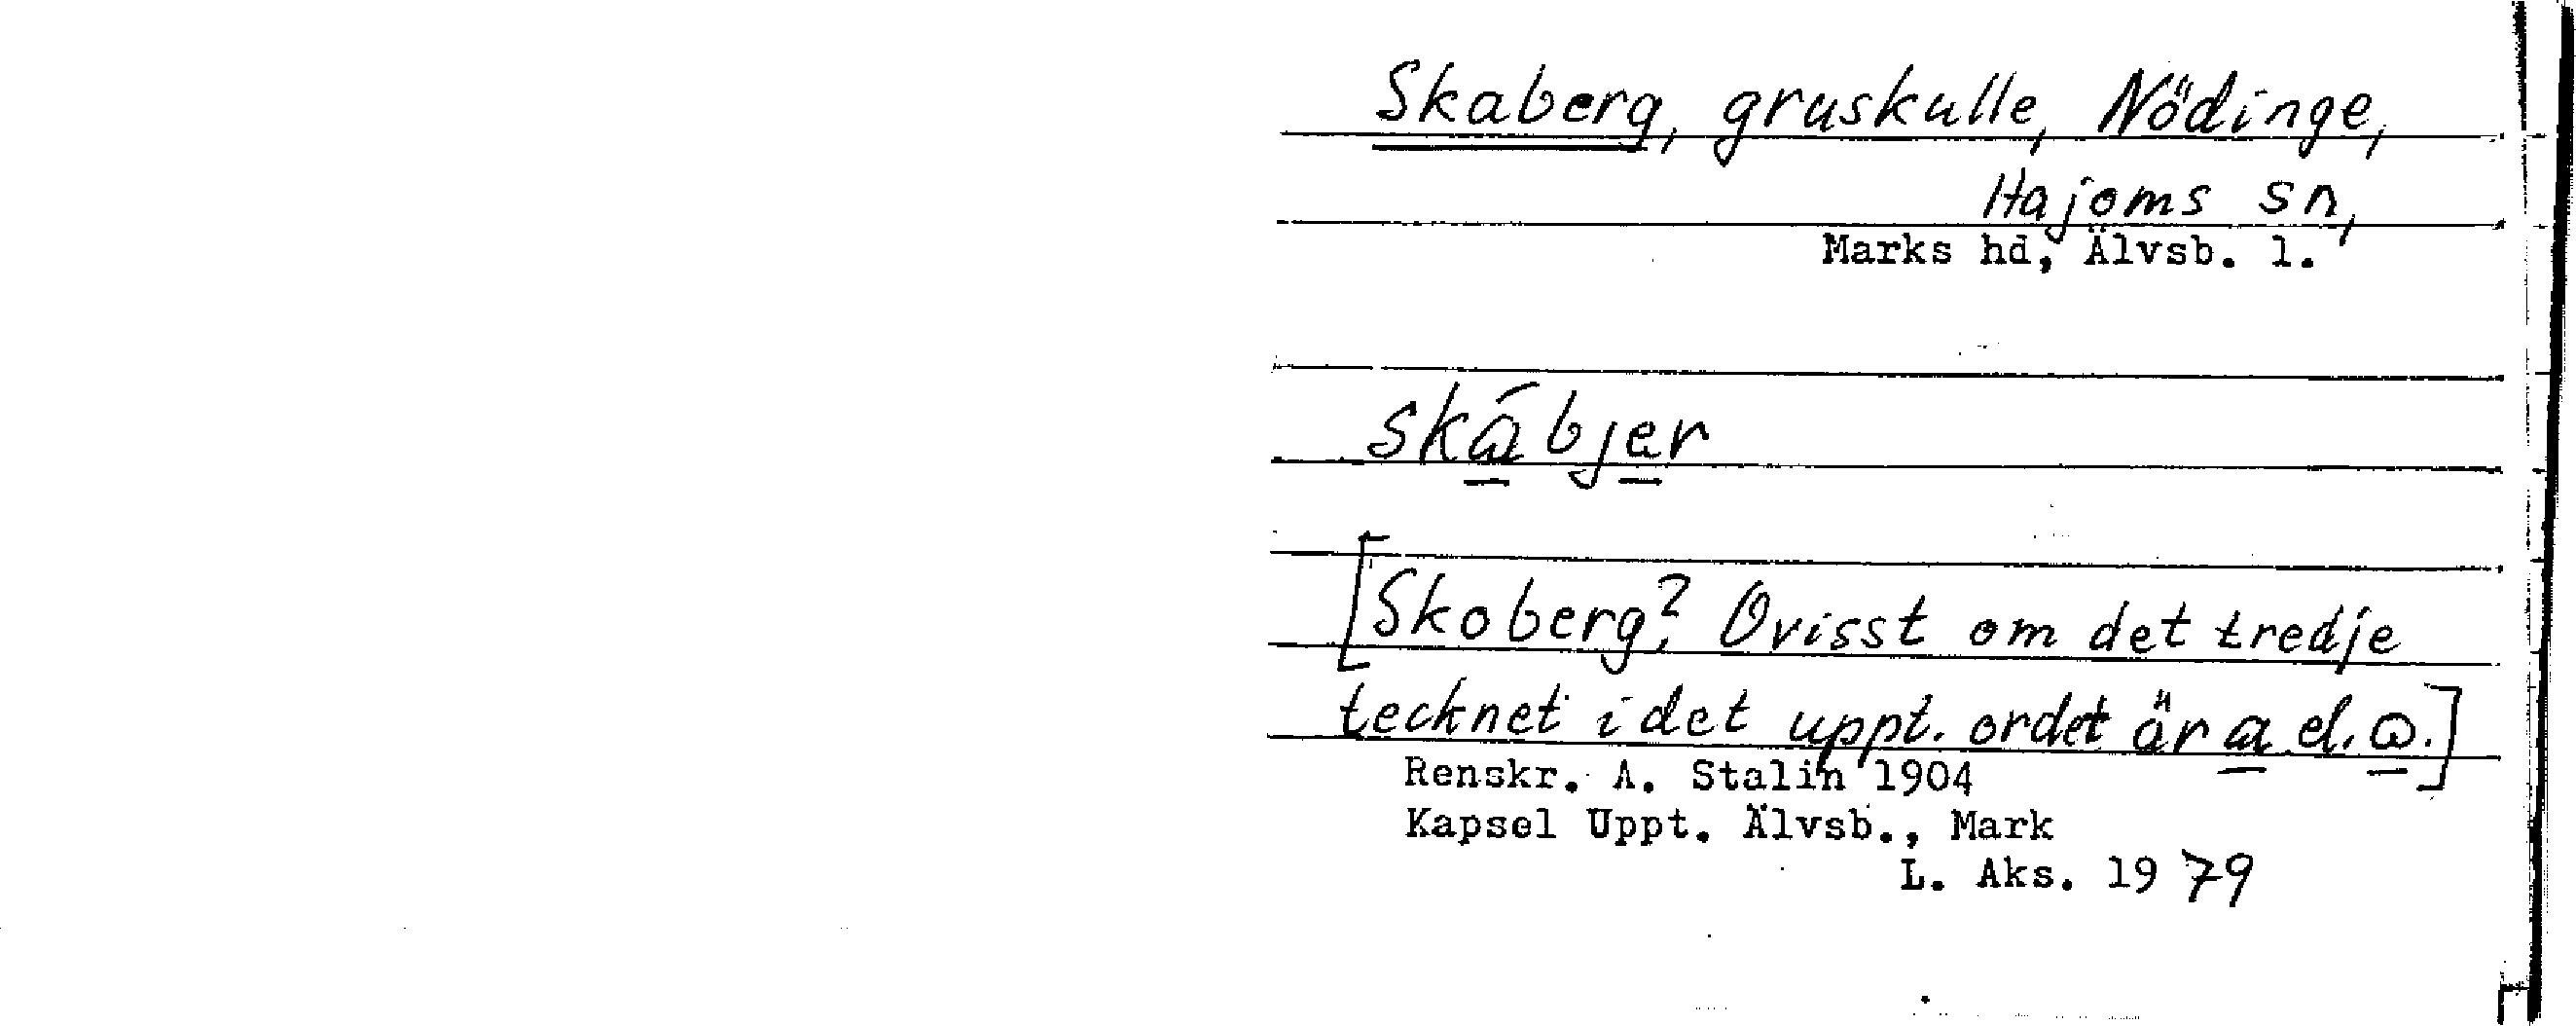 Skaberg, gruskulle, Nödinge,
Hajoms sn,
Marks hd, Älvsb. l.
skábjer
[Skoberg? Ovisst om det tredje
tecknet i det uppt. ordet är a el. ɷ.]
Renskr. A. Stalin 1904
Kapsel Uppt. Älvsb., Mark
L. Aks. 1979